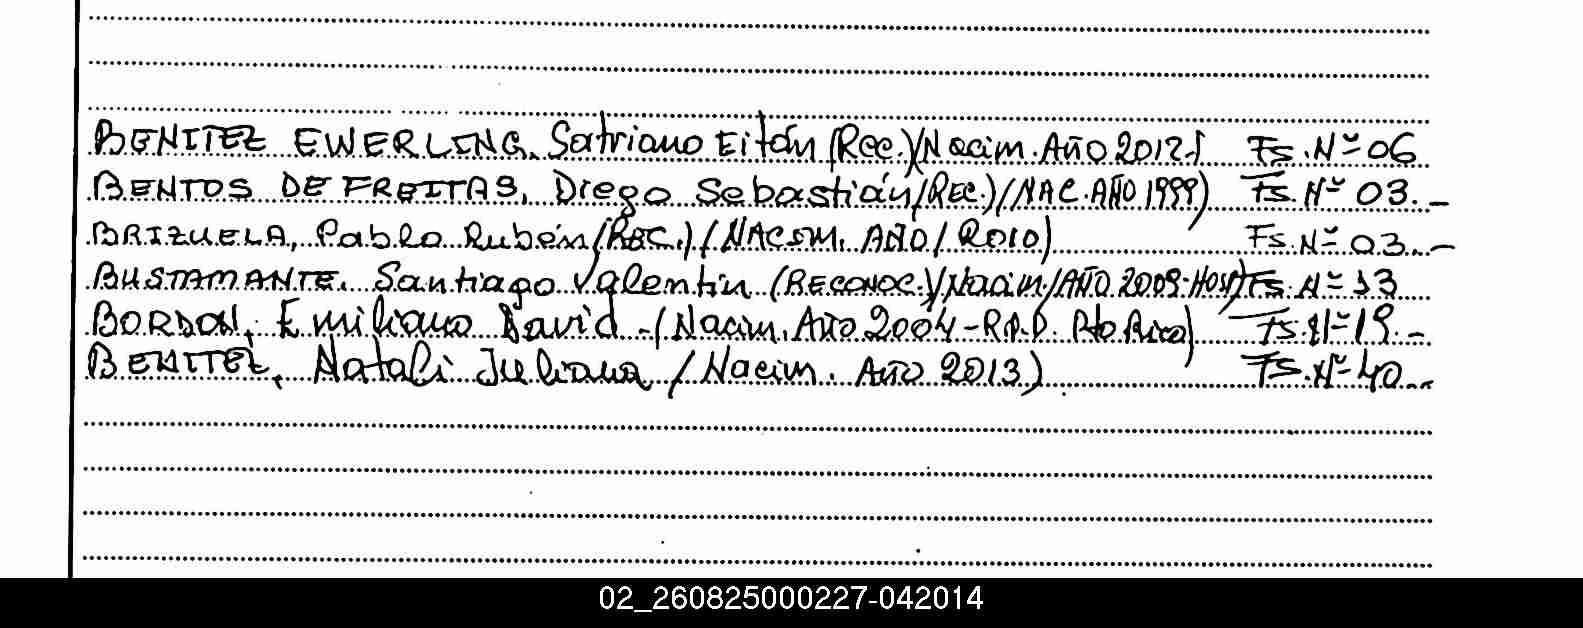 BENITEZ EWERLING, Satriano Eitán (Rec.)(Nacim. Año 2012.) Fs. Nº 06
BENTOS DE FREITAS, Diego Sebastián (REC.)/(NAC. AÑO 1999) Fs. Nº 03.-
BRIZUELA, Pablo Rubén (REC.)/(NACIM. AÑO/2010) Fs. Nº 03.-
BUSTAMANTE, Santiago Valentín (RECONOC.)(Nacim/AÑO 2009-HOSP) Fs. Nº 13
BORDON, Emiliano David-(Nacim. Año 2004-R.P.D. Pto Rico) Fs. Nº 19.-
BENITEZ, Natali Juliana (Nacim. Año 2013) Fs. Nº 40.-
02_260825000227-042014